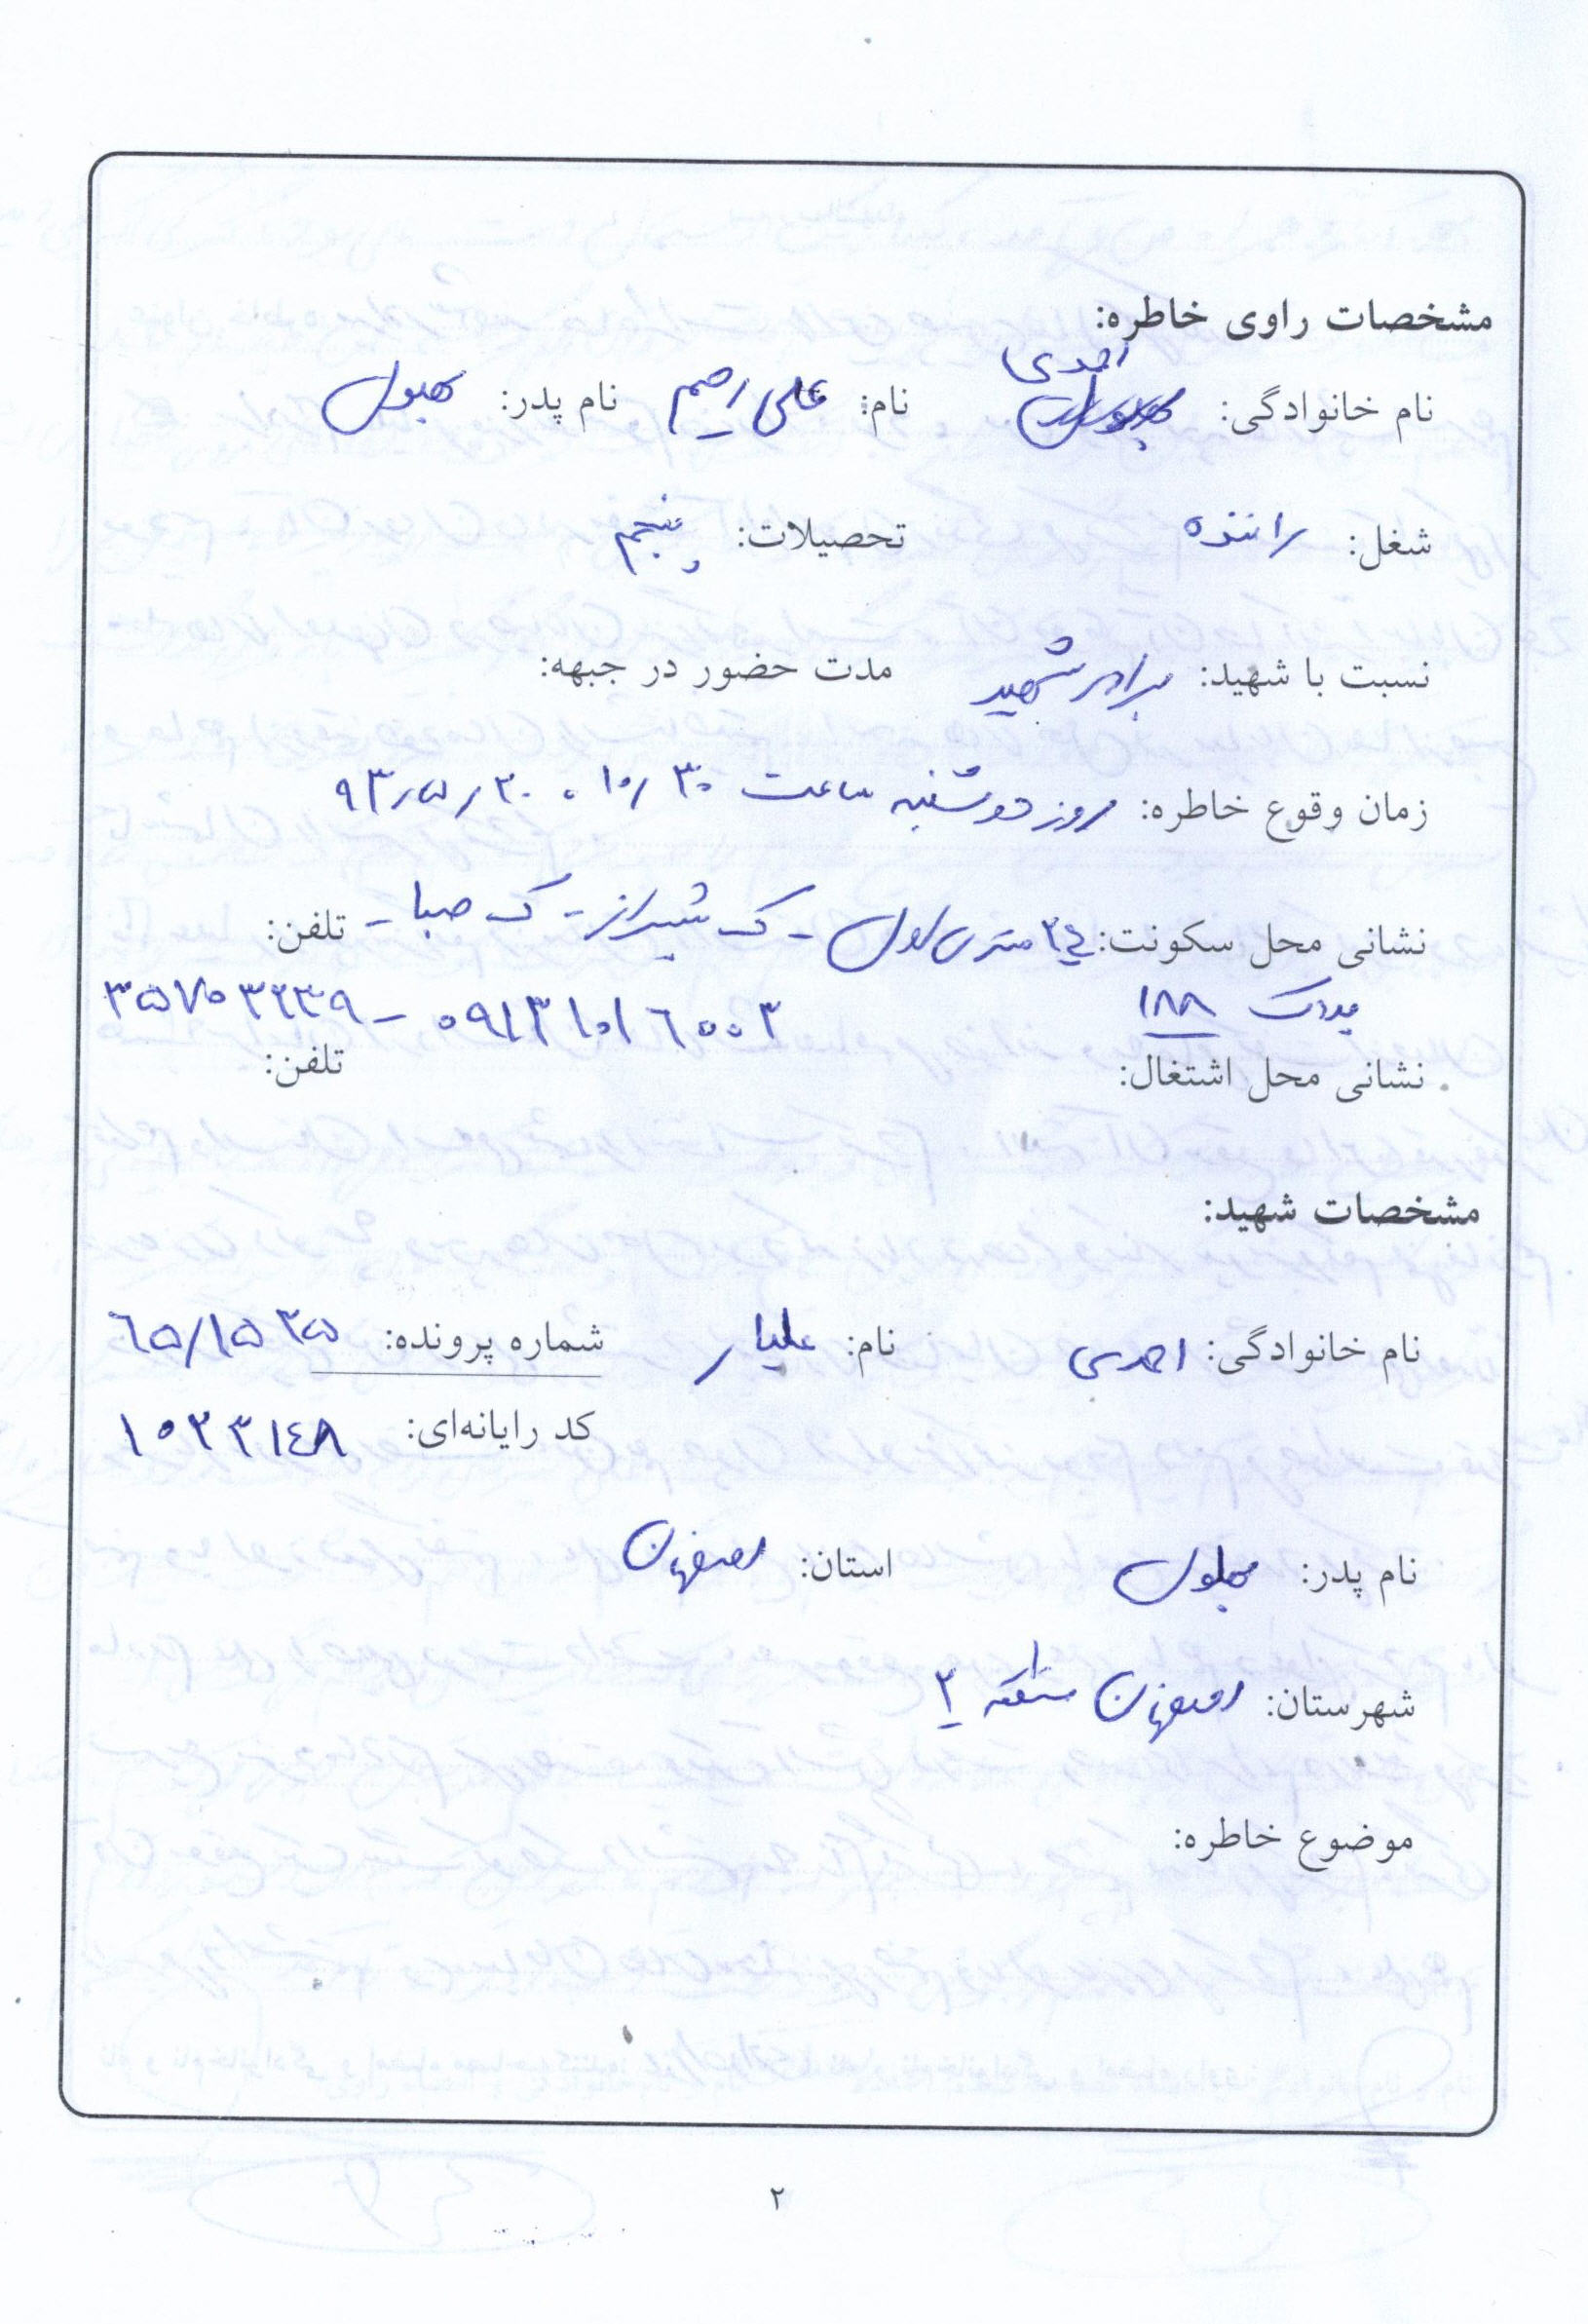 مشخصات راوی خاطره:
احمدی
نام خانوادگی: نام: علی رحیم نام پدر: بهلول
شغل: راننده تحصیلات: پنجم
نسبت با شهید: برادر شهید مدت حضور در جبهه:
زمان وقوع خاطره: روز دوشنبه ساعت ۱۰/۳۰ ۹۳/۵/۲۰
نشانی محل سکونت: متری اول - ک شیراز - ک صبا - تلفن:
پلاک ۱۸۸ ۰۹۱۳۱۰۱۶۰۰۳ - ۳۵۷۰۳۲۳۹
نشانی محل اشتغال: تلفن:
مشخصات شهید:
نام خانوادگی: احمدی نام: علیار شماره پرونده: ۶۵/۱۵۳۵
کد رایانه‌ای: ۱۰۲۳۱۴۸
نام پدر: بهلول استان: اصفهان
شهرستان: اصفهان منطقه ۲
موضوع خاطره:
۲